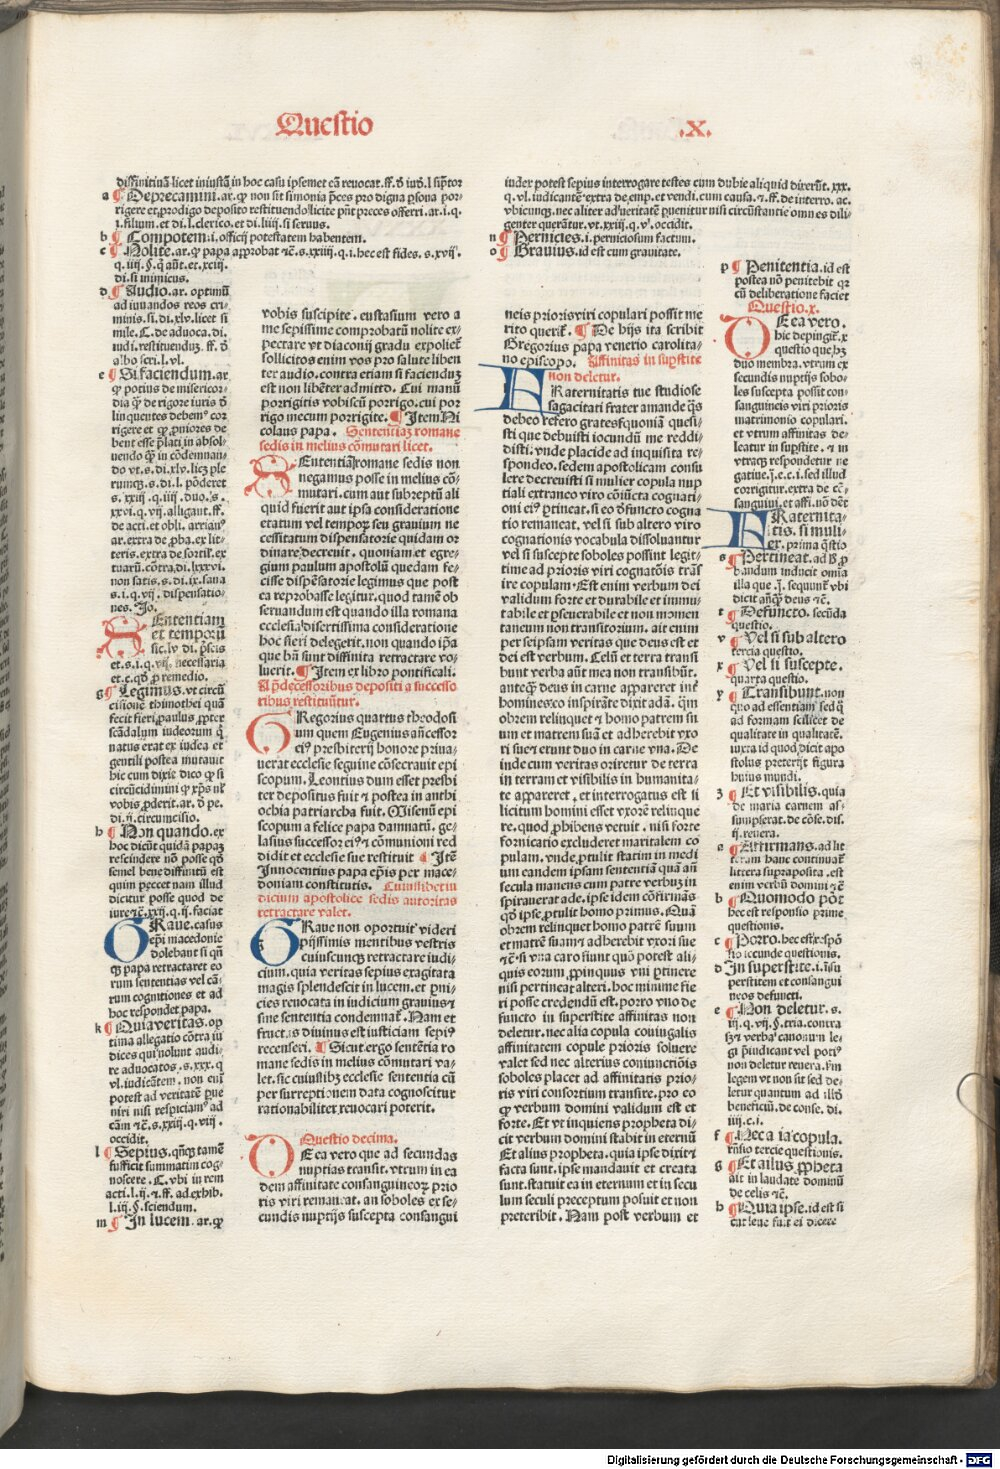 Questio .X.
diffinitiuā licet iniustā in hoc casu ipsemet eā reuocat. ff. ď iuď. l si p̄tor
a ¶ Deprecamur. ar. qď non sit simonia p̄ces pro digna psona por-
rigere et prodigo deposito restituendo licite pn̄t preces offerri. ar. i. q.
i. filium. et di. l. clerico. et di. liiii. si seruus.
b ¶ Compotem. i. officij potestatem habentem.
c ¶ Nolite. ar. qď papa approbat ⁊c̄. s. xxiiij. q. i. hec est fides. s. xvij.
q. iiij. §. q̄ aūt. et. xciij.
di. si inimicus.
d ¶ Audio. ar. optimū
ad iuuandos reos cri-
minis. si. di. xlv. licet si
mile. C. de aduoca. di.
iudi. restituenduȝ. ff. ď
albo scri. l. vl.
e ¶ Si faciendum. ar
qď potius de misericor-
dia qȝ de rigore iuris ď
linquentes debemꝰ cor
rigere et qď pniores de
bent esse p̄lati in absol-
uendo qȝ in cōdemnan-
do vt. s. di. xlv. licȝ ple
rumqȝ. s. di. l. pōderet
s. xxij. q. iiij. duo. s.
xxvi. q. vij. alligant. ff.
de acti. et obli. arrianꝰ
ar. extra de pba. ex lit-
teris. extra de sortil. ex
tuarū. cōtra. di. lxxxvi.
non satis. s. di. ix. sana
s. i. q. vij. dispensatio-
nes. Jo.
f SEntentiam
et temporū
sic. lv di. p̄scis
et. s. i. q. vij. necessaria
et. c. qď p remedio.
g ¶ Legimus. vt circū
cisionē thimothei quā
fecit fieri paulus ppter
scādalum iudeorum q̄
natus erat ex iudea et
gentili postea mutauit
hic cum dixit dico qď si
circūcidimini qď xp̄s nľ
vobis pderit. ar. ď pe.
di. ij. circumcisio.
h ¶ Non quando. ex
hoc dicūt quidā papaȝ
rescindere nō posse qď
semel bene diffiniuit est
quin peccet nam illud
dicitur posse quod de
iure ⁊c̄. xxij. q. ij. faciat
GRaue. casus
ep̄i macedonie
dolebant si qn̄
qȝ papa retractaret eo
rum sententias vel cā-
rum cognitiones et ad
hoc respondet papa.
k ¶ Quia veritas. op
tima allegatio cōtra iu
dices qui nolunt audi-
re aduocatos. s. xxx. q
vl. iudicātem. non enī
potest ad veritatē pue
niri nisi respiciamꝰ ad
cām ⁊c̄. s. xxiij. q. viij.
occidit.
l ¶ Sepius. qn̄qȝ tamē
sufficit summatim cog-
noscere. C. vbi in rem
acti. l. ij. ⁊ ff. ad exhib.
l. iij. §. sciendum.
m ¶ In lucem. ar. qď
vobis suscipite. eustasium vero a
me sepissime comprobatū nolite ex-
pectare vt diaconij gradu expolieť
sollicitos enim vos pro salute liben
ter audio. contra etiam si faciendus
est non libēter admitto. Cui manū
porrigitis vobiscū porrigo. cui por
rigo mecum porrigite. ¶ Item Ni
colaus papa. Sententiaȝ romane
sedis in melius cōmutari licet.
SEntentiā romane sedis non
negamus posse in melius cō-
mutari. cum aut subreptū ali
quid fuerit aut ipsa consideratione
etatum vel temporȝ seu grauium ne
cessitatum dispensatorie quidam or
dinare decreuit. quoniam et egre-
gium paulum apostolū quedam fe-
cisse dispēsatorie legimus que post
ea reprobasse legitur. quod tamē ob
seruandum est quando illa romana
ecclesia discretissima consideratione
hoc fieri delegerit. non quando ip̄a
que bn̄ sunt diffinita retractare vo-
luerit. ¶ Item ex libro pontificali.
A p̄decessoribus depositi a successo
ribus restituūtur.
GRegorius quartus theodosi
um quem Eugenius an̄cessor
eiꝰ presbiterij honore priua-
uerat ecclesie seguine cōsecrauit epi
scopum. Leontius dum esset presbi
ter depositus fuit ⁊ postea in anthi
ochia patriarcha fuit. Misenū epi
scopum a felice papa damnatū. ge-
lasius successor eiꝰ ⁊ cōmunioni red
didit et ecclesie sue restituit ¶ Itē
Innocentius papa ep̄is per mace-
doniam constitutis. Cuiuslibet iu
dicium apostolice sedis autoritas
retractare valet.
GRaue non oportuit videri
pijssimis mentibus vestris
cuiuscunqȝ retractare iudi-
cium. quia veritas sepius exagitata
magis splendescit in lucem. et pni-
cies reuocata in iudicium grauius ⁊
sine sententia condemnať. Nam et
fructus diuinus est iusticiam sepiꝰ
recenseri. ¶ Sicut ergo sentētia ro
mane sedis in melius cōmutari va-
let. sic cuiuslibȝ ecclesie sententia cū
per surreptionem data cognoscitur
rationabiliter reuocari poterit.
Questio decima.
DE ea vero que ad secundas
nuptias transit. vtrum in ea
dem affinitate consanguineorȝ prio
ris viri remaneat. an soboles ex se-
cundis nuptijs suscepta consangui
iudex potest sepius interrogare testes cum dubie aliquid dixerūt. xxx.
q. v. iudicantē extra de emp. et vendi. cum causa. ⁊ ff. de interro. ac.
vbicunqȝ. nec aliter ad veritatē puenitur nisi circūstantie omnes dili-
genter querātur. vt. xxiij. q. v. occidit.
n ¶ Pernicies. i. perniciosum factum.
o ¶ Grauius. id est cum grauitate.
neis prioris viri copulari possit me
rito queriť. ¶ De hijs ita scribit
Gregorius papa venerio carolita-
no episcopo. Affinitas in supstite
non deletur.
FRaternitatis tue studiose
sagacitati frater amande q̄s
debeo refero grates quoniā quesi-
sti que debuisti iocundū me reddi-
disti. vnde placide ad inquisita re-
spondeo. sedem apostolicam consu
lere decreuisti si mulier copula nup
tiali extraneo viro cōiūcta cognati-
oni eiꝰ ptineat. si eo ďfuncto cogna
tio remaneat. vel si sub altero viro
cognationis vocabula dissoluantur
vel si suscepte soboles possint legit-
time ad prioris viri cognatōis trās
ire copulam. Est enim verbum dei
validum forte et durabile et immu-
tabile et pseuerabile et non momen
taneum non transitorium. ait enim
per seipsam veritas que deus est et
dei est verbum. Celū et terra transi
bunt verba aūt mea non transibūt.
anteqȝ deus in carne appareret inť
homines eo inspirāte dixit adā. qm̄
obrem relinquet ⁊ homo patrem su
um et matrem suā et adherebit vxo
ri sue ⁊ erunt duo in carne vna. De
inde cum veritas oriretur de terra
in terram et visibilis in humanita-
te appareret. et interrogatus est si
licitum homini esset vxorē relinque
re. quod phibens vetuit. nisi forte
fornicatio excluderet maritalem co
pulam. vnde ptulit statim in medi
um eandem ipsam sententiā quā an̄
secula manens cum patre verbuȝ in
spirauerat ade. ipse idem cōfirmās
qď ipse ptulit homo primus. Quā
obrem relinquet homo patrē suum
et matrē suam ⁊ adherebit vxori sue
⁊c̄ si vna caro fiunt quō potest ali-
quis eorum ppinquus vni ptinere
nisi pertineat alteri. hoc minime fie
ri posse credendū est. porro vno de
functo in superstite affinitas non
deletur. nec alia copula coniugalis
affinitatem copule prioris soluere
valet sed nec alterius coniunctiōis
soboles placet ad affinitatis prio-
ris viri consortium transire. pro eo
qď verbum domini validum est et
forte. Et vt inquiens propheta di-
cit verbum domini stabit in eternū
Et alius propheta. quia ipse dixit ⁊
facta sunt. ipse mandauit et creata
sunt. statuit ea in eternum et in secu
lum seculi preceptum posuit et non
preteribit. Nam post verbum et
p ¶ Penitentia. id est
postea nō penitebit qȝ
cū deliberatione faciet
Questio. x.
DE ea vero.
hic depingiť. x
questio que hȝ
duo membra. vtrum ex
secundis nuptijs sobo-
les suscepta possit con-
sanguineis viri prioris
matrimonio copulari.
et vtrum affinitas de-
leatur in supstite. ⁊ in
vtraqȝ respondetur ne
gatiue. ij. e. c. i. sed illud
corrigitur. extra de cō-
sanguini. et affi. nō dēt
FRaternita-
tis. si muli-
er. prima q̄stio
s ¶ Pertineat. ad ħ p
bandum inducit omīa
illa que ij. sequunť vbi
dicit an̄qȝ deus ⁊c̄.
t ¶ Defuncto. secūda
questio.
v ¶ Vel si sub altero
tercia questio.
x ¶ Vel si suscepte.
quarta questio.
y ¶ Transibunt. non
quo ad essentiam sed q̄
ad formam scilicet de
qualitate in qualitatē.
iuxta id quod dicit apo
stolus preterijt figura
huius mundi.
z ¶ Et visibilis. quia
de maria carnem as-
sumpserat. de cōse. dis.
ij. reuera.
a ¶ Affirmans. ad lit
teram hanc continuať
littera supraposita. est
enim verbū domini ⁊c̄
b ¶ Quomodo pōt
hec est responsio prime
questionis.
c ¶ Porro. hec est respō
sio secunde questionis.
d In superstite. i. in su
perstitem et consangui
neos defuncti.
e ¶ Non deletur. s.
iij. q. vij. §. tria. contra
sȝ ⁊ verba canonum le-
gi p̄iudicant vel potiꝰ
non deletur reuera. sm̄
legem vt non sit sed de-
letur quantum ad illō
beneficiū. de conse. di.
iiij. c. i.
f ¶ Nec a ia copula.
rn̄sio tercie questionis.
g ¶ Et alius. ppheta
ait in laudate dominū
de celis ⁊c̄.
h ¶ Quia ipse. id est si
cut leue fuit ei dicere
Digitalisierung gefördert durch die Deutsche Forschungsgemeinschaft - DFG